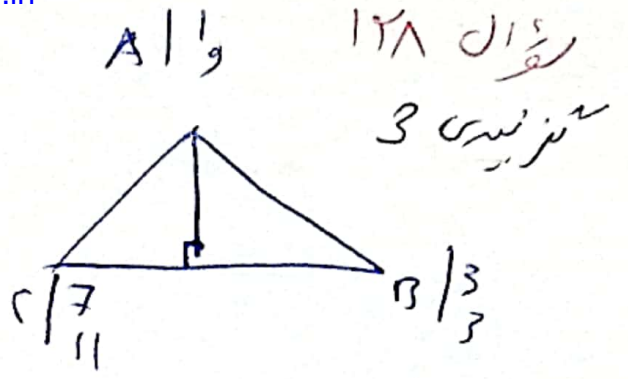 سؤال ۱۲۸
گزینه‌ی 3
A | 1 و
C | 7 11
B | 3 3